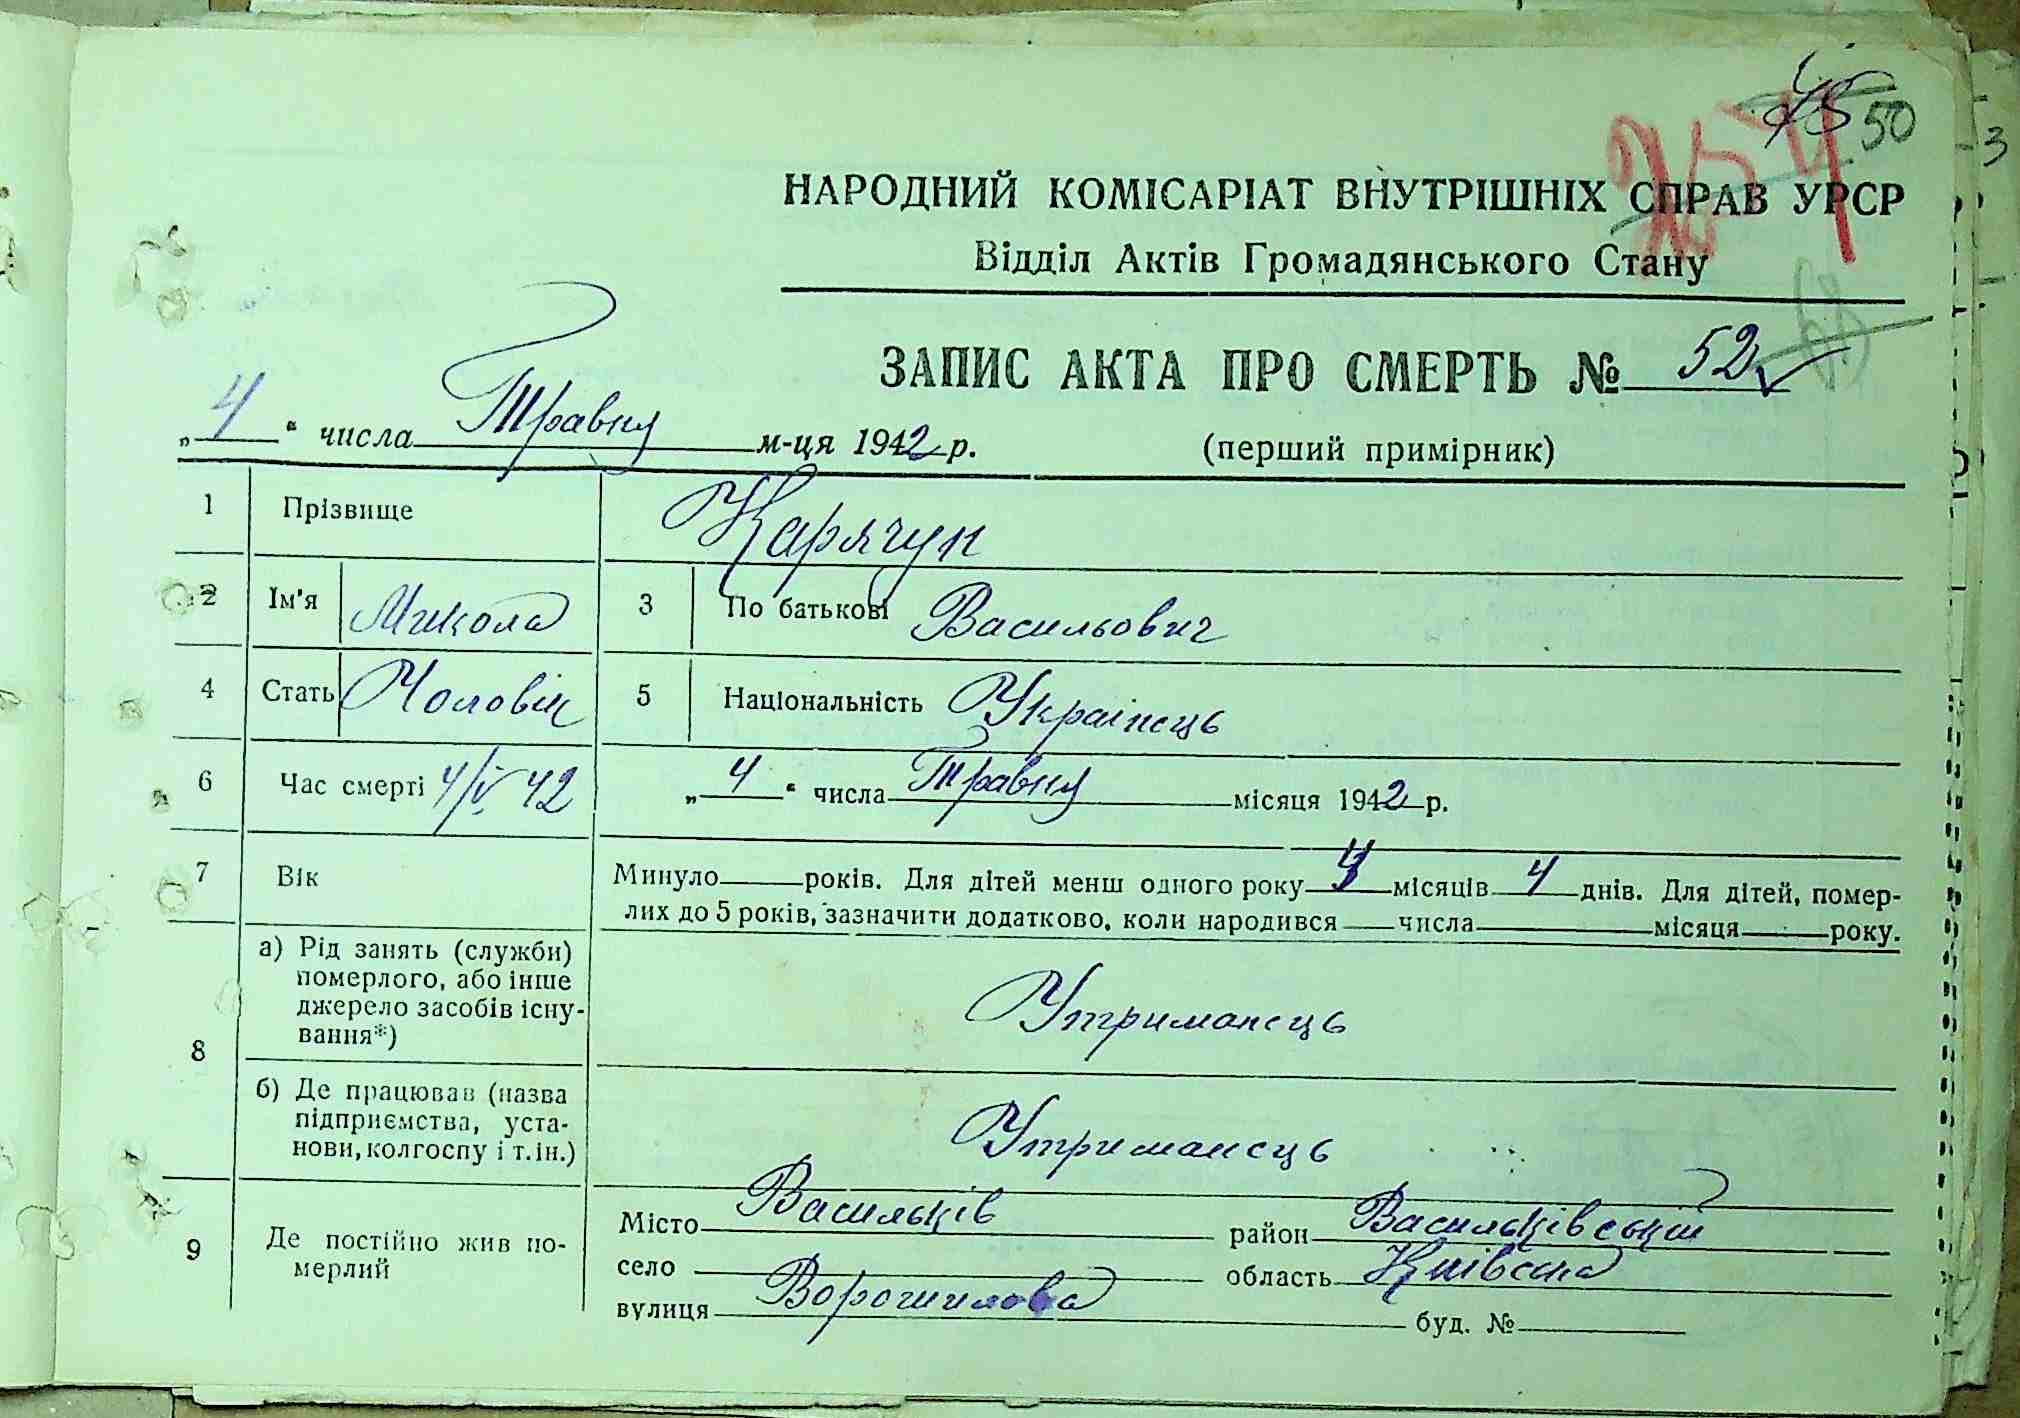 50
254
НАРОДНИЙ КОМІСАРІАТ ВНУТРІШНІХ СПРАВ УРСР
Відділ Актів Громадянського Стану
ЗАПИС АКТА ПРО СМЕРТЬ № 52
„4“ числа Травня м-ця 1942 р. (перший примірник)
1 Прізвище Карячун
2 Ім'я Микола 3 По батькові Васильович
4 Стать Чоловік 5 Національність Українець
6 Час смерті 4/V 42 „4“ числа Травня місяця 1942 р.
7 Вік Минуло років. Для дітей менш одного року місяців 4 днів. Для дітей, помер-
лих до 5 років, зазначити додатково, коли народився числа місяця року.
8 а) Рід занять (служби)
померлого, або інше
джерело засобів існу-
вання*) Утриманець
б) Де працював (назва
підприємства, уста-
нови, колгоспу і т. ін.) Утриманець
9 Де постійно жив по-
мерлий
Місто Васильків район Васильківський
село область Київска
вулиця Ворошилова буд. №